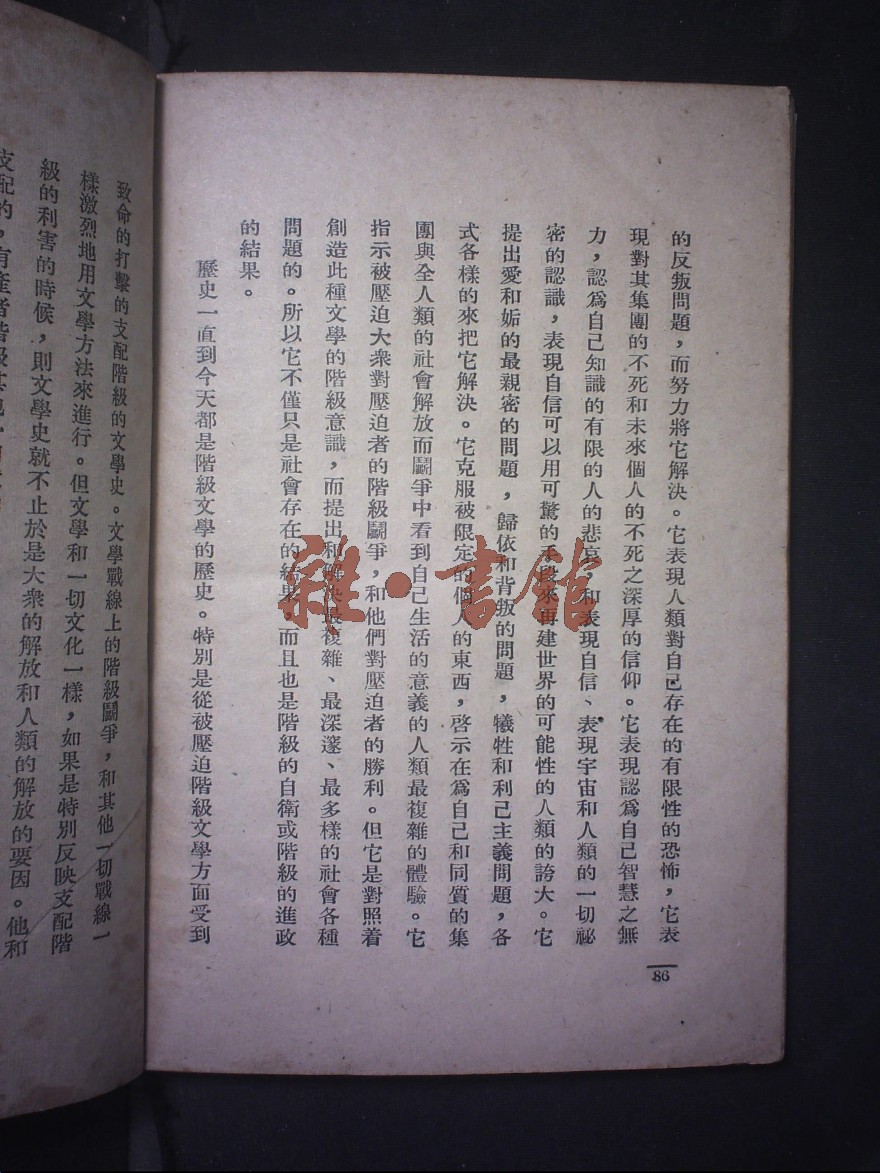 的反叛問題，而努力將它解決。它表現人類對自己存在的有限性的恐怖，它表
現對其集團的不死和未來個人的不死之深厚的信仰。它表現認爲自己智慧之無
力，認爲自己知識的有限的人的悲哀，和表現自信、表現宇宙和人類的一切祕
密的認識，表現自信可以用可驚的手段來再建世界的可能性的人類的誇大。它
提出愛和妬的最親密的問題，歸依和背叛的問題，犧牲和利己主義問題，各
式各樣的來把它解決。它克服被限定的個人的東西，啓示在爲自己和同質的集
團與全人類的社會解放而鬭爭中看到自己生活的意義的人類最複雜的體驗。它
指示被壓迫大衆對壓迫者的階級鬭爭，和他們對壓迫者的勝利。但它是對照着
創造此種文學的階級意識，而提出和解決最複雜、最深邃、最多樣的社會各種
問題的。所以它不僅只是社會存在的結果，而且也是階級的自衛或階級的進政
的結果。
歷史一直到今天都是階級文學的歷史。特別是從被壓迫階級文學方面受到
86
致命的打擊的支配階級的文學史。文學戰線上的階級鬭爭，和其他一切戰線一
樣激烈地用文學方法來進行。但文學和一切文化一樣，如果是特別反映支配階
級的利害的時候，則文學史就不止於是大衆的解放和人類的解放的要因。他和
支配的，有產者階級其他
雜·書館